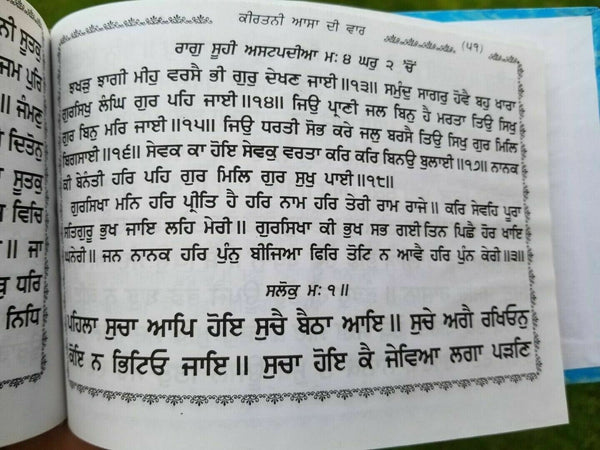 ਨੀ ਸੂਤਕੁ
ਜਮ ਪੁਰਿ
ਜੰਮਣੁ
ਦਿਤੋਨੁ
ਸੂਤਕੁ
ਵਿਚਿ
॥ ਜਾ
ਧਰਿ
ਨਿਧਿ
ਕੀਰਤਨੀ ਆਸਾ ਦੀ ਵਾਰ
(੫੧)
ਰਾਗੁ ਸੂਹੀ ਅਸਟਪਦੀਆ ਮਃ ੪ ਘਰੁ ੨ 'ਚੋਂ
ਝਖੜੁ ਝਾਗੀ ਮੀਹੁ ਵਰਸੈ ਭੀ ਗੁਰੁ ਦੇਖਣ ਜਾਈ॥੧੩॥ ਸਮੁੰਦੁ ਸਾਗਰੁ ਹੋਵੈ ਬਹੁ ਖਾਰਾ
ਗੁਰਸਿਖੁ ਲੰਘਿ ਗੁਰ ਪਹਿ ਜਾਈ॥੧੪॥ ਜਿਉ ਪ੍ਰਾਣੀ ਜਲ ਬਿਨੁ ਹੈ ਮਰਤਾ ਤਿਉ ਸਿਖੁ
ਗੁਰ ਬਿਨੁ ਮਰਿ ਜਾਈ॥੧੫॥ ਜਿਉ ਧਰਤੀ ਸੋਭ ਕਰੇ ਜਲੁ ਬਰਸੈ ਤਿਉ ਸਿਖੁ ਗੁਰ ਮਿਲਿ
ਬਿਗਸਾਈ॥੧੬॥ ਸੇਵਕ ਕਾ ਹੋਇ ਸੇਵਕੁ ਵਰਤਾ ਕਰਿ ਕਰਿ ਬਿਨਉ ਬੁਲਾਈ॥੧੭॥ ਨਾਨਕ
ਕੀ ਬੇਨੰਤੀ ਹਰਿ ਪਹਿ ਗੁਰ ਮਿਲਿ ਗੁਰ ਸੁਖੁ ਪਾਈ॥੧੮॥
ਗੁਰਸਿਖਾ ਮਨਿ ਹਰਿ ਪ੍ਰੀਤਿ ਹੈ ਹਰਿ ਨਾਮ ਹਰਿ ਤੇਰੀ ਰਾਮ ਰਾਜੇ॥ ਕਰਿ ਸੇਵਹਿ ਪੂਰਾ
ਸਤਿਗੁਰੂ ਭੁਖ ਜਾਇ ਲਹਿ ਮੇਰੀ॥ ਗੁਰਸਿਖਾ ਕੀ ਭੁਖ ਸਭ ਗਈ ਤਿਨ ਪਿਛੈ ਹੋਰ ਖਾਇ
ਘਨੇਰੀ॥ ਜਨ ਨਾਨਕ ਹਰਿ ਪੁੰਨੁ ਬੀਜਿਆ ਫਿਰਿ ਤੋਟਿ ਨ ਆਵੈ ਹਰਿ ਪੁੰਨ ਕੇਰੀ॥੩॥
ਸਲੋਕੁ ਮਃ ੧॥
ਪਹਿਲਾ ਸੁਚਾ ਆਪਿ ਹੋਇ ਸੁਚੈ ਬੈਠਾ ਆਇ॥ ਸੁਚੇ ਅਗੈ ਰਖਿਓਨੁ
ਕੋਇ ਨ ਭਿਟਿਓ ਜਾਇ॥ ਸੁਚਾ ਹੋਇ ਕੈ ਜੇਵਿਆ ਲਗਾ ਪੜਣਿ